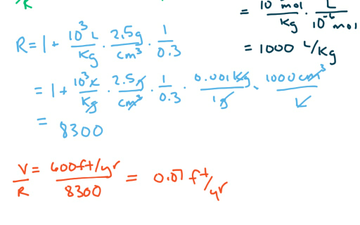 = 10 mol/Kg · L/10⁻⁶ mol
= 1000 L/Kg
R = 1 + 10³ L/Kg · 2.5g/cm³ · 1/0.3
= 1 + 10³ L/Kg · 2.5g/cm³ · 1/0.3 · 0.001kg/1g · 1000 cm³/L
= 8300
V/R = 600 ft/yr / 8300 = 0.07 ft/yr